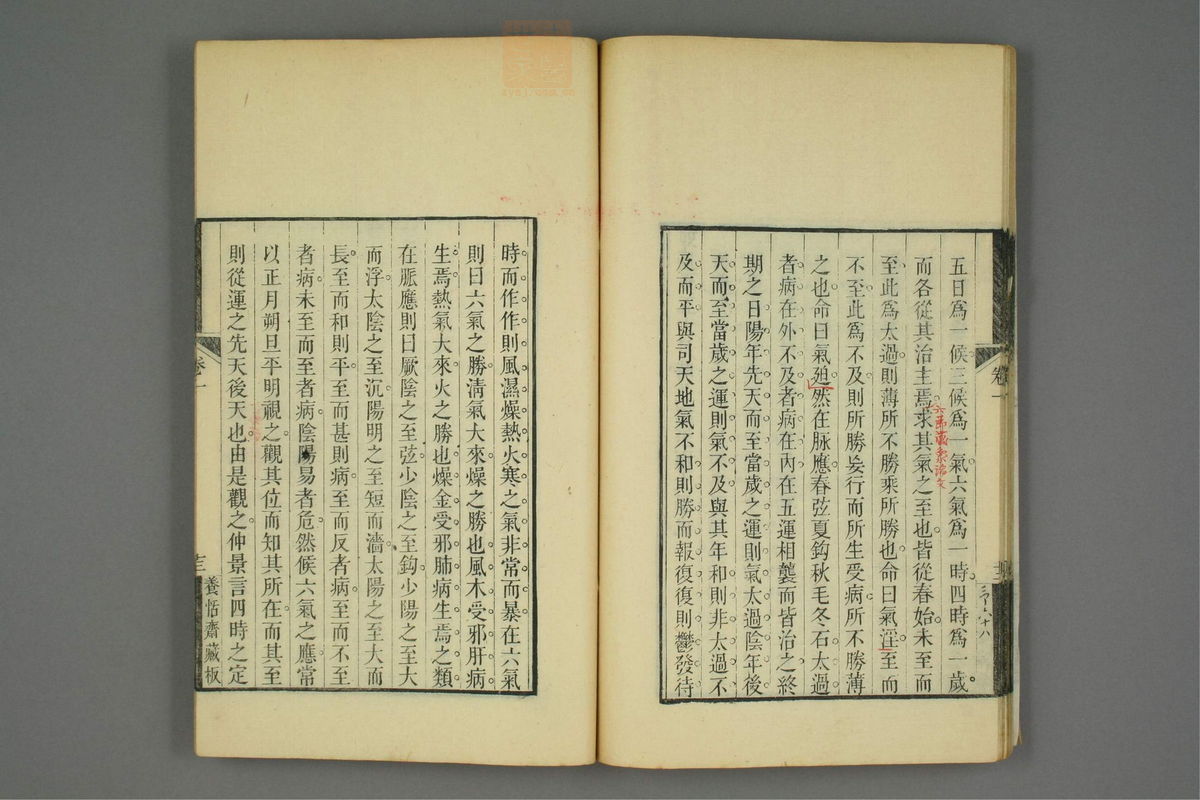 五日爲一候三候爲一氣六氣爲一時四時爲一歲
而各從其治主焉求其氣之至也皆從春始未至而
至此爲太過則薄所不勝乘所勝也命曰氣淫至而
不至此爲不及則所勝妄行而所生受病所不勝薄
之也命曰氣迫然在脉應春弦夏鈎秋毛冬石太過
者病在外不及者病在內在五運相襲而皆治之終
期之日陽年先天而至當歲之運則氣太過陰年後
天而至當歲之運則氣不及與其年和則非太過不
及而平與司天地氣不和則勝而報復復則鬱發待
卷一
時而作作則風濕燥熱火寒之氣非常而暴在六氣
則曰六氣之勝淸氣大來燥之勝也風木受邪肝病
生焉熱氣大來火之勝也燥金受邪肺病生焉之類
在脈應則曰厥陰之至弦少陰之至鈎少陽之至大
而浮太陰之至沉陽明之至短而濇太陽之至大而
長至而和則平至而甚則病至而反者病至而不至
者病未至而至者病陰陽易者危然候六氣之應常
以正月朔旦平明視之觀其位而知其所在而其至
則從運之先天後天也由是觀之仲景言四時之定
卷一
養恬齋藏板